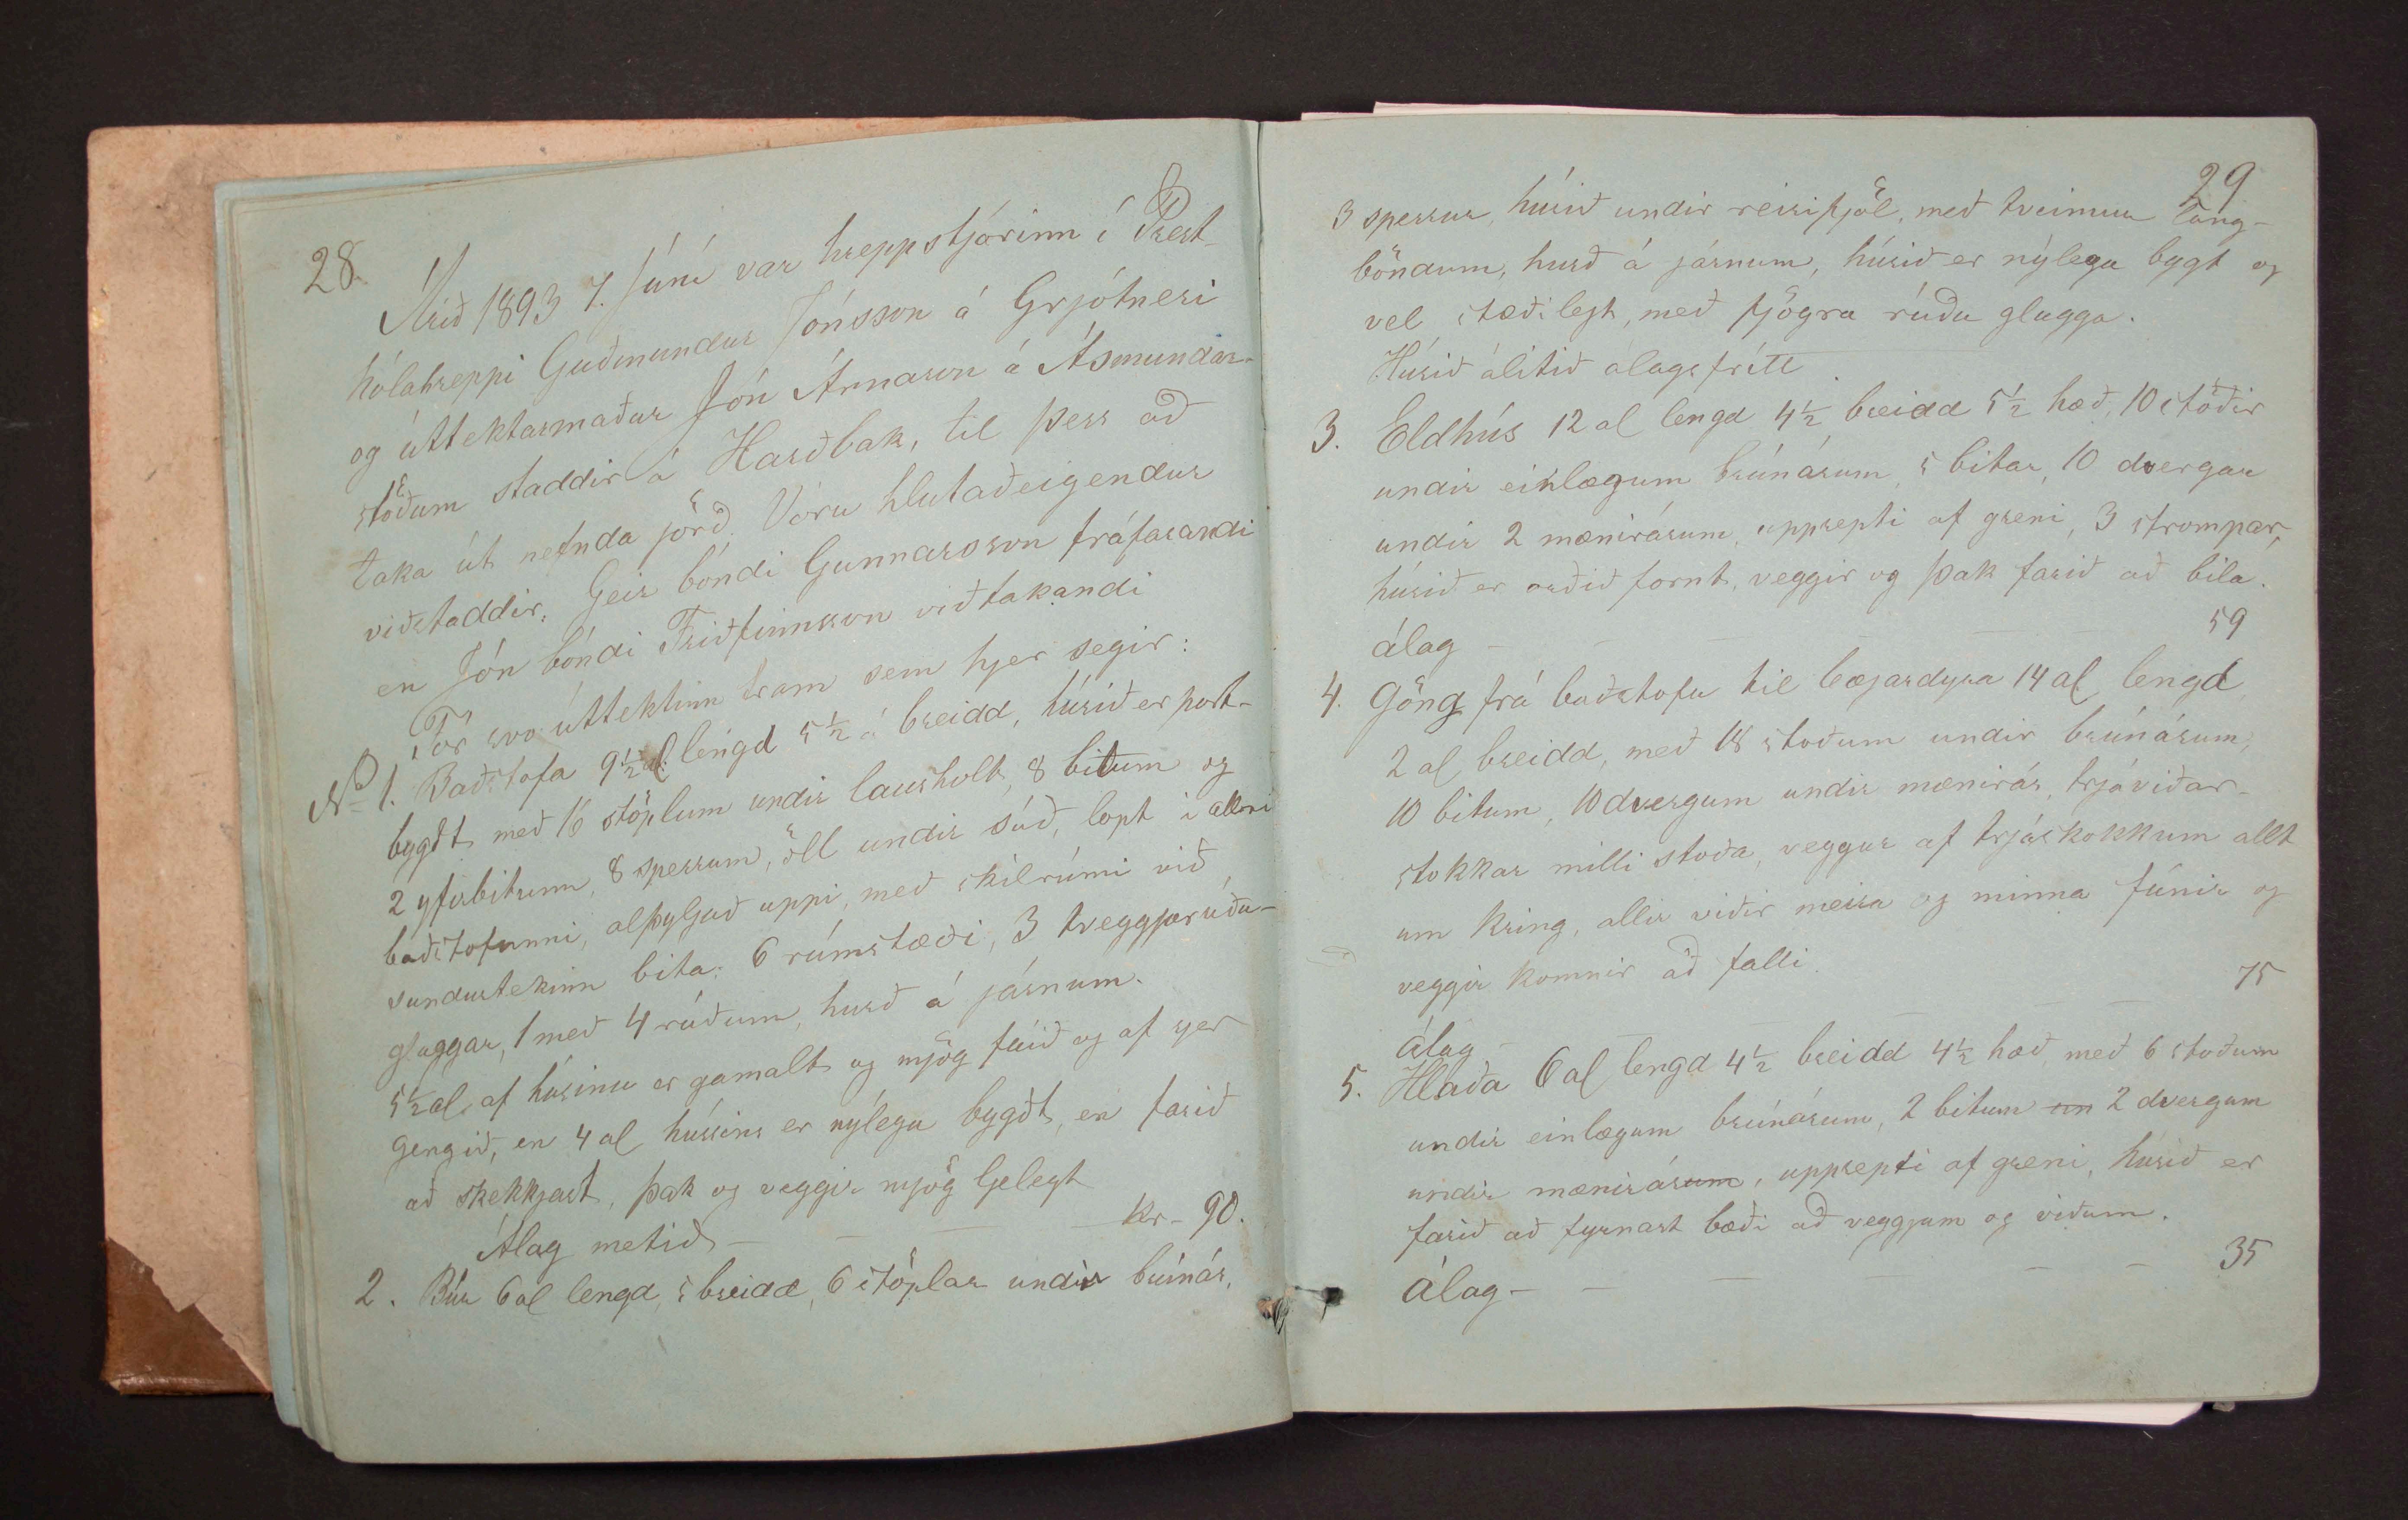 28
Árið 1893 7. Júní var hreppstjórinn í Prest-
hólahreppi Guðmundur Jónsson á Grjótnesi
og úttektarmaður Jón Árnason á Ásmundar-
stöðum staddir á Harðbak, til þess að
taka út nefnda jörð. Vóru hlutaðeigendur
viðstaddir. Geir bóndi Gunnarsson fráfarandi
en Jón bóndi Friðfinnsson viðtakandi
Fór svo úttektinn fram sem hjer segir:
No 1. Baðstofa 9½ al. lengd 5½ á breidd, húsið er port-
bygðt með 16 stöplum undir lausholt, 8 bitum og
2 yfirbitum, 8 sperrum, öll undir súð, lopt í allri
baðstofunni, alþyljað uppi, með skilrúmi við
sundurtekinn bita. 6 rúmstæði, 3 tveggjarúðu-
gluggar, 1 með 4 rúðum, hurð á járnum.
5½ al. af húsinu er gamalt og mjög fúið og af sjer
gengið, en 4 al hússins er nýlega bygðt, en farið
að skekkjast, þak og veggir mjög ljelegt
Álag metið - - - - kr - 90.
2. Búr 6 al lengd, 5 breidd, 6 stöplar undir brúnás,
29
3 sperrur, húsið undir reisifjöl, með tveimur lang-
böndum, hurð á járnum, húsið er nýlega bygt og
vel stæðilegt, með fjögra rúðu glugga.
Húsið álitið álagsfrítt
3. Eldhús 12 al lengd 4½ breidd 5½ hæð, 10 stoðir
undir einlægum brúnásum, 5 bitar, 10 dvergar
undir 2 mænirásum, upprepti af greni, 3 strompar,
húsið er orðið fornt, veggir og þak farið að bila.
álag - - - - - 59
4. Göng frá baðstofu til bæjardyra 14 al lengd
2 al breidd, með 18 stoðum undir brúnásum,
10 bitum, 10 dvergum undir mænirás, trjáviðar-
stokkar milli stoða, veggur af trjástokkum allt
um kring, allir viðir meira og minna fúnir og
veggir komnir að falli.
Álag - - - - 75
5. Hlaða 6 al lengd 4½ breidd 4½ hæð með 6 stoðum
undir einlægum brúnásum, 2 bitum un 2 dvergum
undir mænirásum, upprepti af greni, húsið er
farið að fyrnast bæði að veggjum og viðum.
Álag - - - - - 35